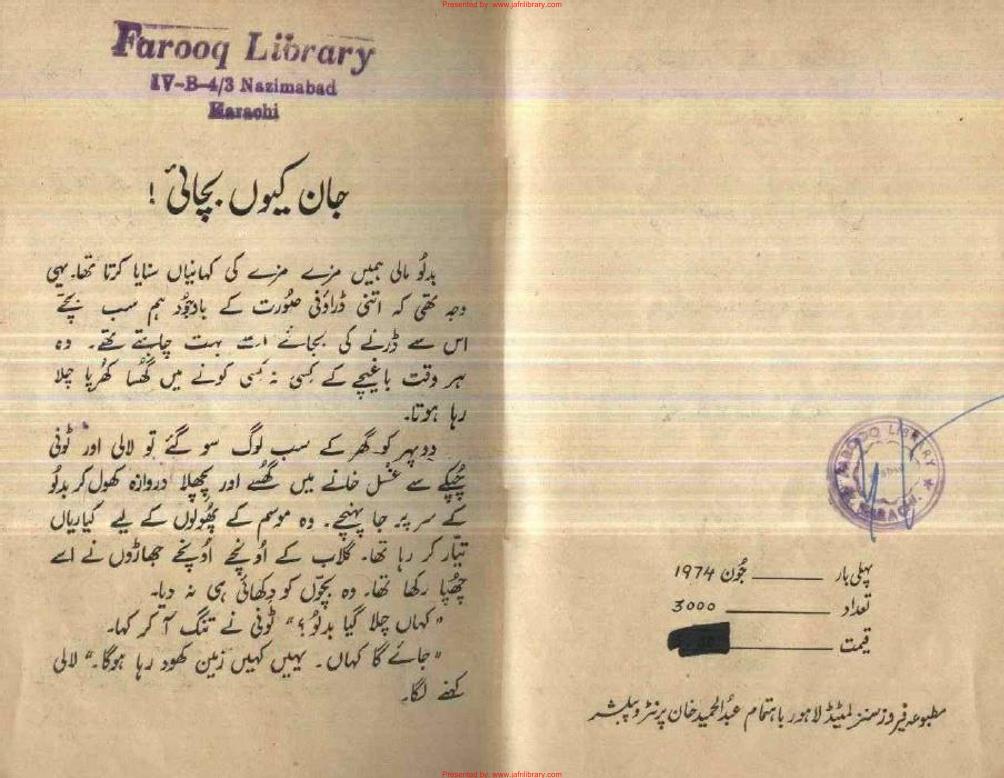 Presented by: www.jafrilibrary.com
پہلی بار ـــــــ جُون 1974
تعداد ـــــــ 3000
قیمت ـــــــ
مطبوعہ فیروز سنز لمیٹڈ لاہور باہتمام عبدالحمید خان پرنٹر و پبلشر
LIBRARY
KARACHI.
Farooq Library
IV-B-4/3 Nazimabad
Karachi
جان کیوں بچائی !
بدلُو مالی ہمیں مزے مزے کی کہانیاں سنایا کرتا تھا۔ یہی
وجہ تھی کہ اتنی ڈراؤنی صُورت کے باوجُود ہم سب بچّے
اس سے ڈرنے کی بجائے اسے بہت چاہتے تھے۔ وہ
ہر وقت باغیچے کے کِسی نہ کِسی کونے میں گُھسا کُھرپا چلا
رہا ہوتا۔
دوپہر کو گھر کے سب لوگ سو گئے تو لالی اور ٹونی
چُپکے سے غُسل خانے میں گُھسے اور پچھلا دروازہ کھول کر بدلُو
کے سر پر جا پہنچے۔ وہ موسم کے پُھولوں کے لیے کیاریاں
تیّار کر رہا تھا۔ گلاب کے اُونچے اُونچے جھاڑوں نے اسے
چُھپا رکھا تھا۔ وہ بچّوں کو دِکھائی ہی نہ دیا۔
"کہاں چلا گیا بدلُو؟" ٹونی نے تنگ آ کر کہا۔
"جائے گا کہاں۔ یہیں کہیں زمین کھود رہا ہوگا۔" لالی
کہنے لگا۔
Presented by: www.jafrilibrary.com